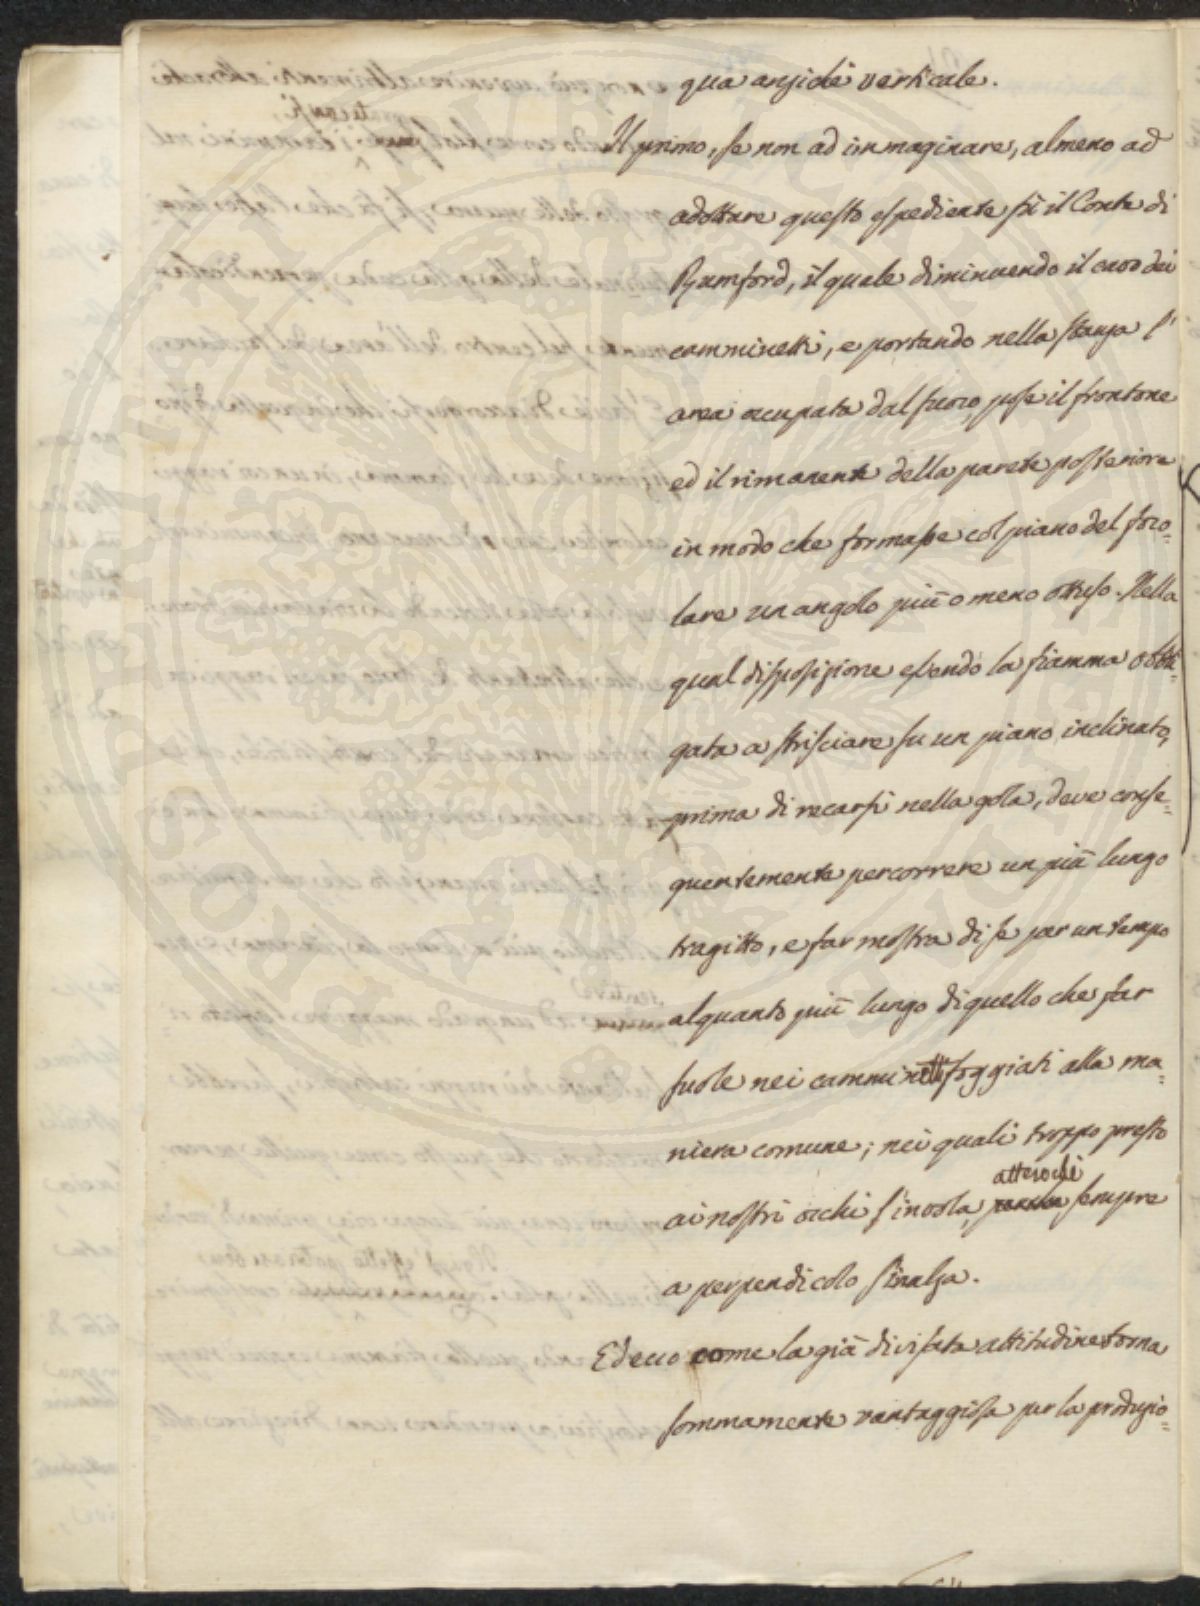 qua anzichè verticale.
Il primo, se non ad inmaginare, almeno ad
adottare questo espediente fù il Conte di
Rumford, il quale diminuendo il cavo dei
camminetti, e portando nella stanza l'
area occupata dal fuoco, pose il frontone
ed il rimanente della parete posteriore
in modo che formasse col piano del foco=
lare un angolo più o meno ottuso. Nella
qual disposizione essendo la fiamma obbli=
gata a strisciare su un piano inclinato,
prima di recarsi nella gola, deve conse=
quentemente percorrere un più lungo
tragitto, e far mostra di se per un tempo
alquanto più lungo di quello che far
suole nei camminetti foggiati alla ma=
niera comune; nei quali troppo presto
attesochè
ai nostri occhi s'invola, perchè sempre
a perpendicolo s'inalza.
Ed ecco come la già divisata attitudine torna
sommamente vantaggiosa per la produzio=